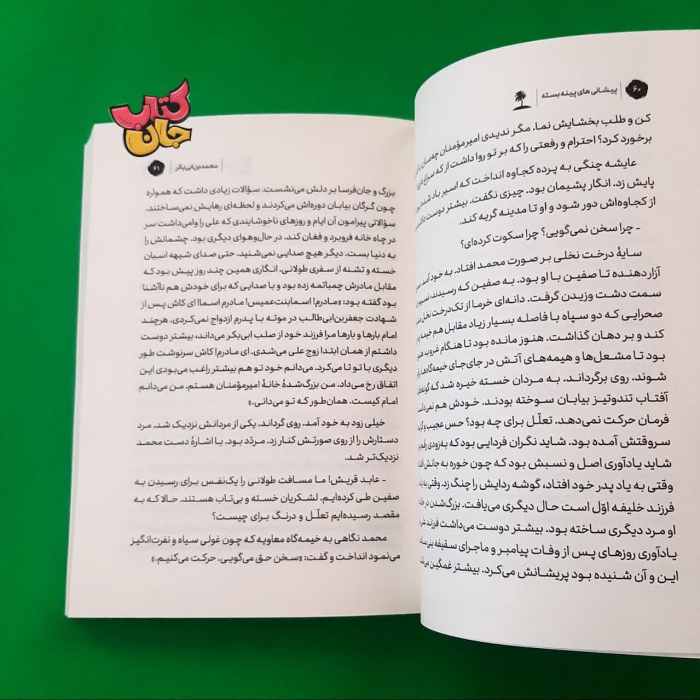 ۶۰ پیشانی‌های پینه بسته
کن و طلب بخشایش نما. مگر ندیدی امیرمؤمنان چه‌سان با
برخورد کرد؟ احترام و رفعتی را که بر تو روا داشت از که سراغ
عایشه چنگی به پرده کجاوه انداخت که اسیر باد شده بود
پایش زد. انگار پشیمان بود. چیزی نگفت. بیشتر دوست داشت
از کجاوه‌اش دور شود و او تا مدینه گریه کند.
- چرا سخن نمی‌گویی؟ چرا سکوت کرده‌ای؟
سایهٔ درخت نخلی بر صورت محمد افتاد. به خود آمد.
آزاردهنده تا صفین با او بود. به صفین که رسیدند، نسیم
سمت دشت وزیدن گرفت. دانه‌ای خرما از تک‌درخت نخل
صحرایی که دو سپاه با فاصله بسیار زیاد مقابل هم خیمه
کند و بر دهان گذاشت. هنوز مانده بود تا هنگام غروب
بود تا مشعل‌ها و هیمه‌های آتش در جای‌جای خیمه‌گاه‌ها
شوند. روی برگرداند. به مردان خسته خیره شد که گونه‌ها
آفتاب تندوتیز بیابان سوخته بودند. خودش هم نمی‌دانست
فرمان حرکت نمی‌دهد. تعلّل برای چه بود؟ حس عجیب و
سروقتش آمده بود. شاید نگران فردایی بود که به‌زودی
شاید یادآوری اصل و نسبش بود که چون خوره به جانش
وقتی به یاد پدر خود افتاد، گوشه ردایش را چنگ زد. وقتی به یاد
فرزند خلیفه اوّل است حال دیگری می‌یافت. بزرگ‌شدن در خانه
او مرد دیگری ساخته بود. بیشتر دوست می‌داشت فرزند
یادآوری روزهای پس از وفات پیامبر و ماجرای سقیفه بنی
این و آن شنیده بود پریشانش می‌کرد. بیشتر غمگین می‌شد
کتاب
جان
محمدبن‌ابی‌بکر ۶۱
بزرگ و جان‌فرسا بر دلش می‌نشست. سؤالات زیادی داشت که همواره
چون گرگان بیابان دوره‌اش می‌کردند و لحظه‌ای رهایش نمی‌ساختند.
سؤالاتی پیرامون آن ایام و روزهای ناخوشایندی که علی را وامی‌داشت سر
در چاه خانه فروبرد و فغان کند. در حال‌وهوای دیگری بود. چشمانش را
به دنیا بست. دیگر هیچ صدایی نمی‌شنید. حتی صدای شیهه اسبان
خسته و تشنه از سفری طولانی. انگاری همین چند روز پیش بود که
مقابل مادرش چمباتمه زده بود و با صدایی که برای خودش هم ناآشنا
بود گفته بود: «مادرم! اسمابنت‌عمیس! مادرم اسما! ای کاش پس از
شهادت جعفربن‌ابی‌طالب در موته با پدرم ازدواج نمی‌کردی. هرچند
امام بارها و بارها مرا فرزند خود از صلب ابی‌بکر می‌داند، بیشتر دوست
داشتم از همان ابتدا زوج علی می‌شدی. ای مادرم! کاش سرنوشت طور
دیگری با تو تا می‌کرد. می‌دانم خود تو هم بیشتر راغب می‌بودی این
اتفاق رخ می‌داد. من بزرگ‌شدهٔ خانهٔ امیرمؤمنان هستم. من می‌دانم
امام کیست. همان‌طور که تو می‌دانی.»
خیلی زود به خود آمد. روی گرداند. یکی از مردانش نزدیک شد. مرد
دستارش را از روی صورتش کنار زد. مردّد بود. با اشارهٔ دست محمد
نزدیک‌تر شد.
- عابد قریش! ما مسافت طولانی را یک‌نفس برای رسیدن به
صفین طی کرده‌ایم. لشکریان خسته و بی‌تاب هستند. حالا که به
مقصد رسیده‌ایم تعلّل و درنگ برای چیست؟
محمد نگاهی به خیمه‌گاه معاویه که چون غولی سیاه و نفرت‌انگیز
می‌نمود انداخت و گفت: «سخن حق می‌گویی. حرکت می‌کنیم.»